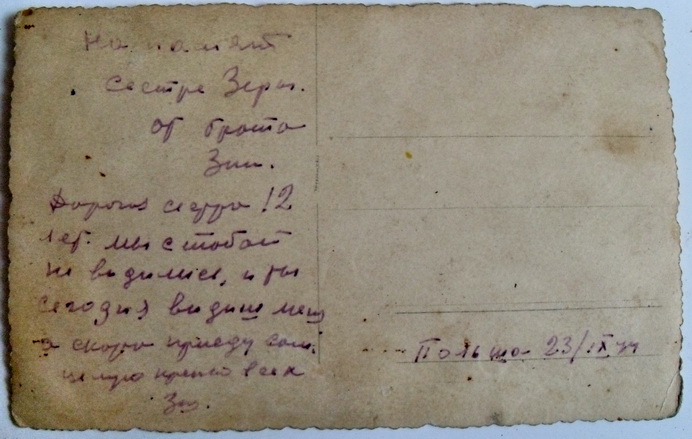 На памят
сестре Зеры.
от брата
Зии.
Дорогая сестра! 2
лет мы с тобой
не видимся, и ты
сегодня видиш меня
а скоро приеду сам.
целую крепко всех
Зия.
Польша 23/IX 44